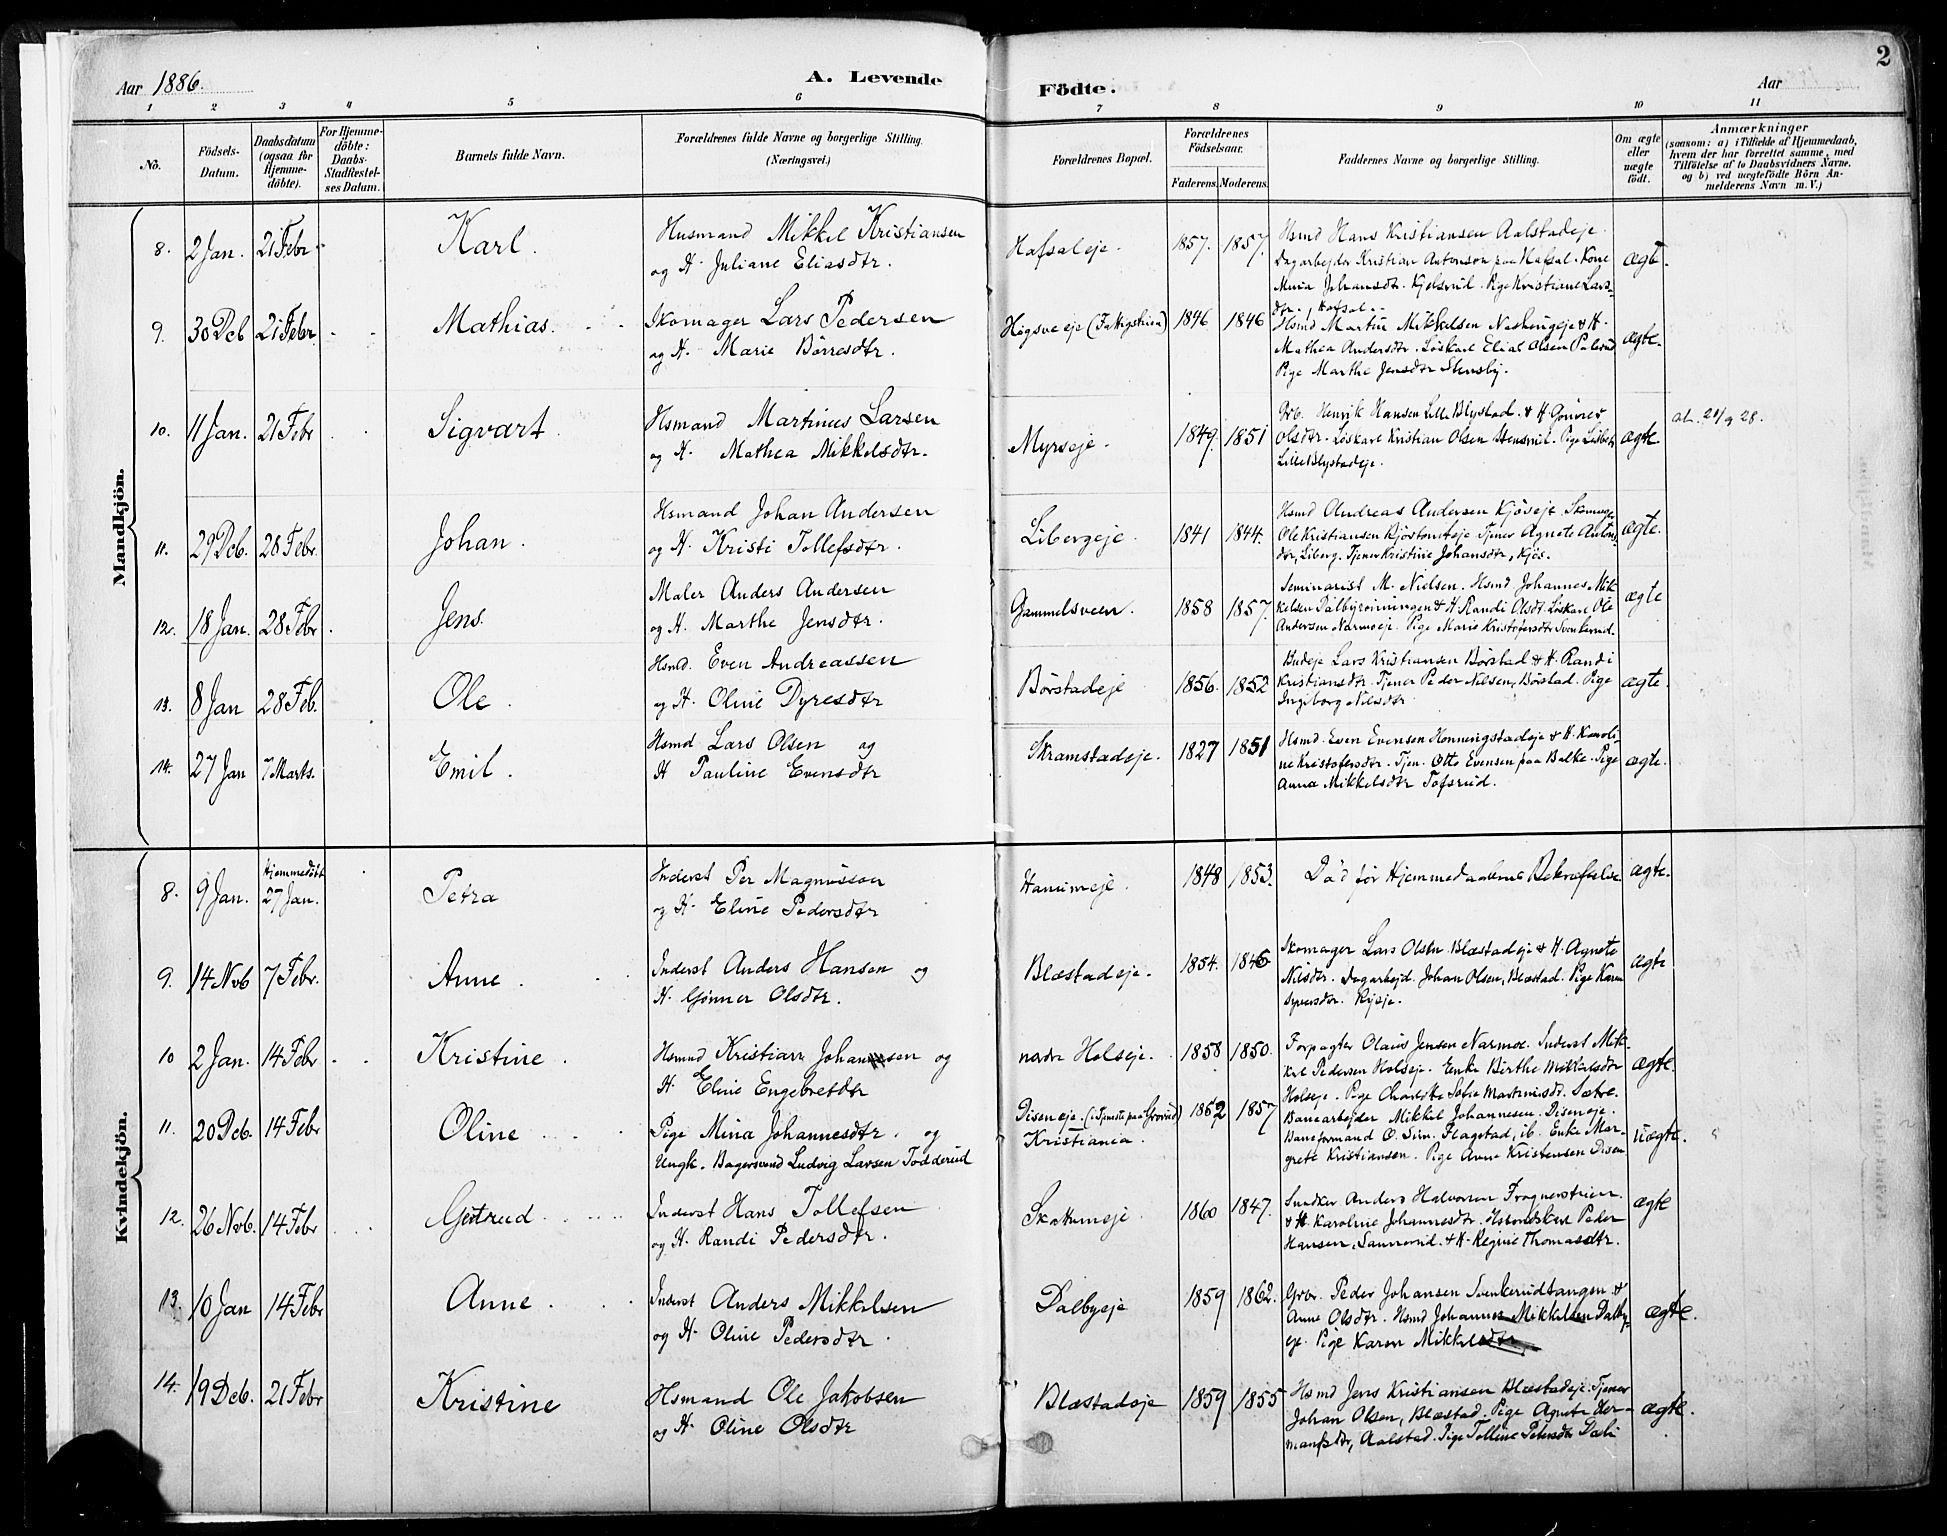 2
Aar 1886.
A. Levende
Födte.
Aar
1 2 3 4 5 6 7 8 9 10 11
No.
Födsels-
Datum.
Daabsdatum
(ogsaa for
Hjemme-
döbte).
For Hjemme-
döbte:
Daabs-
Stadfæstel-
ses Datum.
Barnets fulde Navn.
Forældrenes fulde Navne og borgerlige Stilling.
(Næringsvei.)
Forældrenes Bopæl.
Forældrenes
Födselsaar.
Faderens. Moderens.
Faddernes Navne og borgerlige Stilling.
Om ægte
eller
uægte
födt.
Anmærkninger
(saasom: a) i Tilfælde af Hjemmedaab,
hvem der har forrettet samme, med
Tilföielse af to Daabsvidners Navne,
og b) ved uægtefödte Börn An-
melderens Navn m. V.)
Mandkjön.
8. 2 Jan. 21 Febr. Karl.
Husmand Mikkel Kristiansen
og H. Juliane Eliasdtr.
Hafsaleje. 1857. 1857.
Hsmd Hans Kristiansen Aalstadeje.
Dagarbejder Kristian Antonsen paa Hafsal. Kone
Maria Johansdtr. Kjelsrud. Pige Kristiane Lars-
dtr., Hafsal.
ægt.
9. 30 Dcb 21 Febr. Mathias.
Skomager Lars Pedersen
og H. Marie Börresdtr.
Högsveeje (Fattigstuen) 1846 1846
Hsmd Martin Mikkelsen & H.
Mathea Andersdtr. Löskarl Elias Olsen
Pige Marthe Jensdtr Stensby.
ægte.
10. 11 Jan. 21 Febr Sigvart.
Hsmand Martinus Larsen
og H. Mathea Mikkelsdtr.
Myrseje. 1849. 1851
Grb. Henrik Hansen Lille Blystad. & H.
Olsdtr. Löskarl Kristian Olsen Stensrud. Pige
Lille Blystadeje.
ægte.
at. 21/9 28.
11. 29 Dcb. 28 Febr. Johan.
Hsmand Johan Andersen
og H. Kristi Tollefsdtr.
Libergeje. 1841 1844.
Hsmd Andreas Andersen Kjöseje. Skomager
Ole Kristiansen Tjener Agnete Antons-
dtr, Liberg. Tjener Kristine Johansdtr, Kjös.
ægte.
12. 18 Jan. 28 Febr. Jens.
Maler Anders Andersen
og H. Marthe Jensdtr.
Gammelsveen. 1858 1857.
Seminarist M. Nielsen. Hsmd Johannes Mik-
kelsen Dalbyrönningen & H. Randi Olsdt. Löskarl Ole
Andersen Narmoeje. Pige Maria Kristofersdtr Svenkerud.
ægte
13. 8 Jan 28 Feb. Ole.
Hsmd. Even Andreassen
og H. Oline Dyresdtr
Börstadeje 1856. 1852
Lars Kristiansen Börstad & H. Randi
Kristiansdtr. Tjener Peder Nilsen, Börstad. Pige
Ingeborg Nilsdtr
ægte.
14. 27 Jan 7 Marts. Emil.
Hsmd Lars Olsen og
H Pauline Evensdtr
Skramstadeje. 1827 1851
Hsmd. Even Evensen Honningstadeje & H. Karoli-
ne Kristofersdtr. Tjen. Otto Evensen paa Balke. Pige
Anna Mikkelsdtr Tofsrud.
ægte.
Kvindekjön.
8. 9 Jan. Hjemmedöbt
27 Jan. Petra
Inderst Per Magnusson
og H. Eline Pedersdtr
1848 1853.
Död för Hjemmedaabens Bekræftelse.
ægte.
9. 14 Nvb 7 Febr. Anne.
Inderst Anders Hansen og
H. Gunner Olsdtr.
Blæstadeje. 1854. 1845
Skomager Lars Olsen Blæstadeje & H. Agnete
Nilsdtr. Dagarbejd. Johan Olsen, Blæstad. Pige Karen
Syversdtr. Ryeje.
ægte
10 2 Jan. 14 Febr Kristine.
Hsmnd Kristian Johannesen og
H. Eline Engebretdtr
nedre Holseje. 1858 1850.
Forpagter Olaus Jensen Narmo. Inderst Mik-
kel Pedersen Holseje. Enke Birthe Mikkelsdtr
Holseje. Pige Charlotte Sofie Martinisdtr. Sætre.
ægte.
11. 20 Dcb. 14 Febr Oline
Pige Mina Johannesdtr. og
Ungk. Bagersvend Ludvig Larsen Todderud
Diseneje. (i Tjeneste paa Grorud)
Kristiania. 1862 1857
Banearbejder Mikkel Johannesen. Diseneje.
Baneformand O. Sim. Flagstad, ib. Enke Mar-
grete Kristiansen. Pige Anne Kristensen Disen
uægte.
12. 26 Nvb. 14 Febr Gjertrud
Inderst Hans Tollefsen
og H. Randi Pedersdtr.
Skattumeje. 1860 1847.
Snedker Anders Halvorsen
& H. Karoline Johannesdtr. Peder
Hansen, Sannerud. & H. Regine Thomasdtr.
ægte
13. 10 Jan 14 Febr Anne.
Inderst Anders Mikkelsen
og H. Oline Pedersdtr.
Dalbyeje 1859 1862.
Grbr. Peder Johansen Svenkerudtangen &
Anne Olsdtr. Hsmd Johannes Mikkelsen Dalby-
eje. Pige Karen Mikkelsdtr,
ægte.
14. 19 Dcb. 21 Febr Kristine
Hsmand Ole Jakobsen
og H. Oline Olsdtr
Blæstadeje 1859 1855
Hsmd Jens Kristiansen Blæstadeje. Tjener
Johan Olsen, Blæstad. Pige Agnete Her-
mansdtr, Aalstad. Pige Tolline Petersdtr Dæli
ægte.